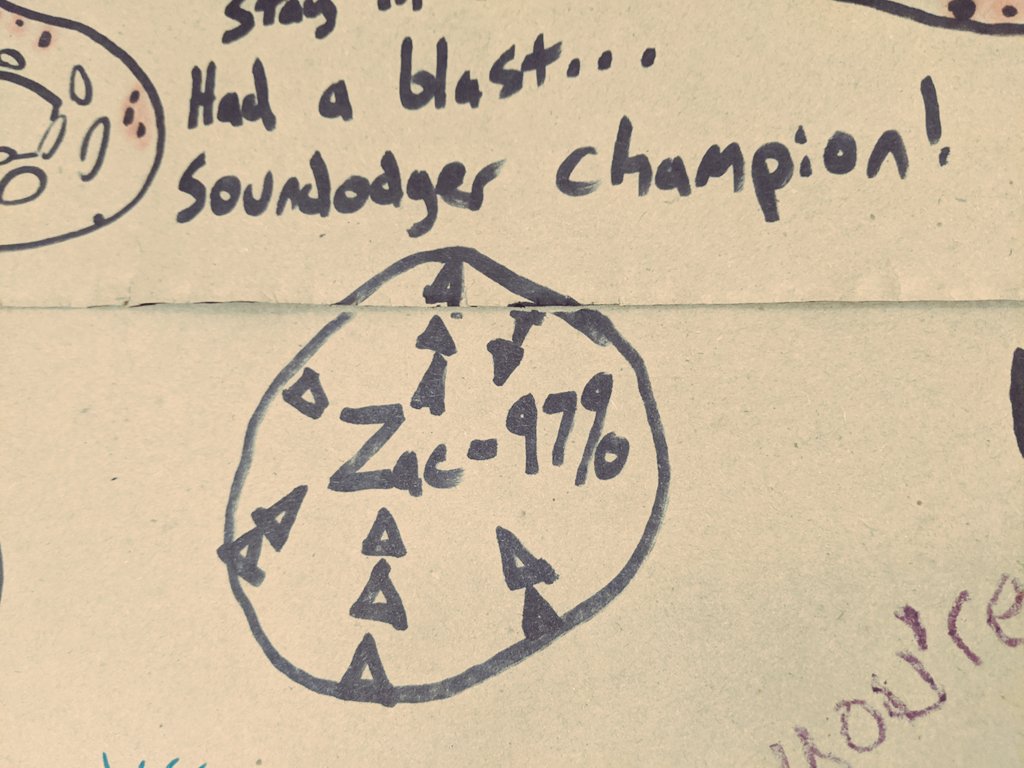 Stay in
Had a blast...
Soundodger champion!
Zac - 97%
you're